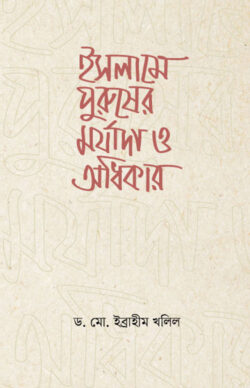 ইসলামে
পুরুষের
মর্যাদা ও
অধিকার
ড. মো. ইব্রাহীম খলিল